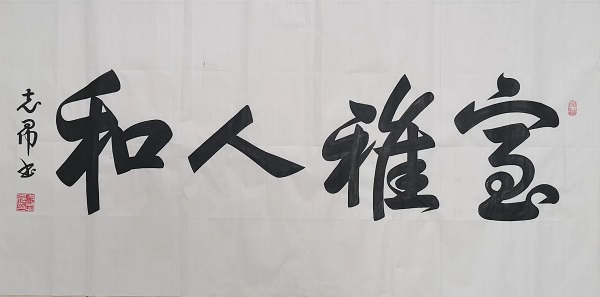 室雅人和
志帚书